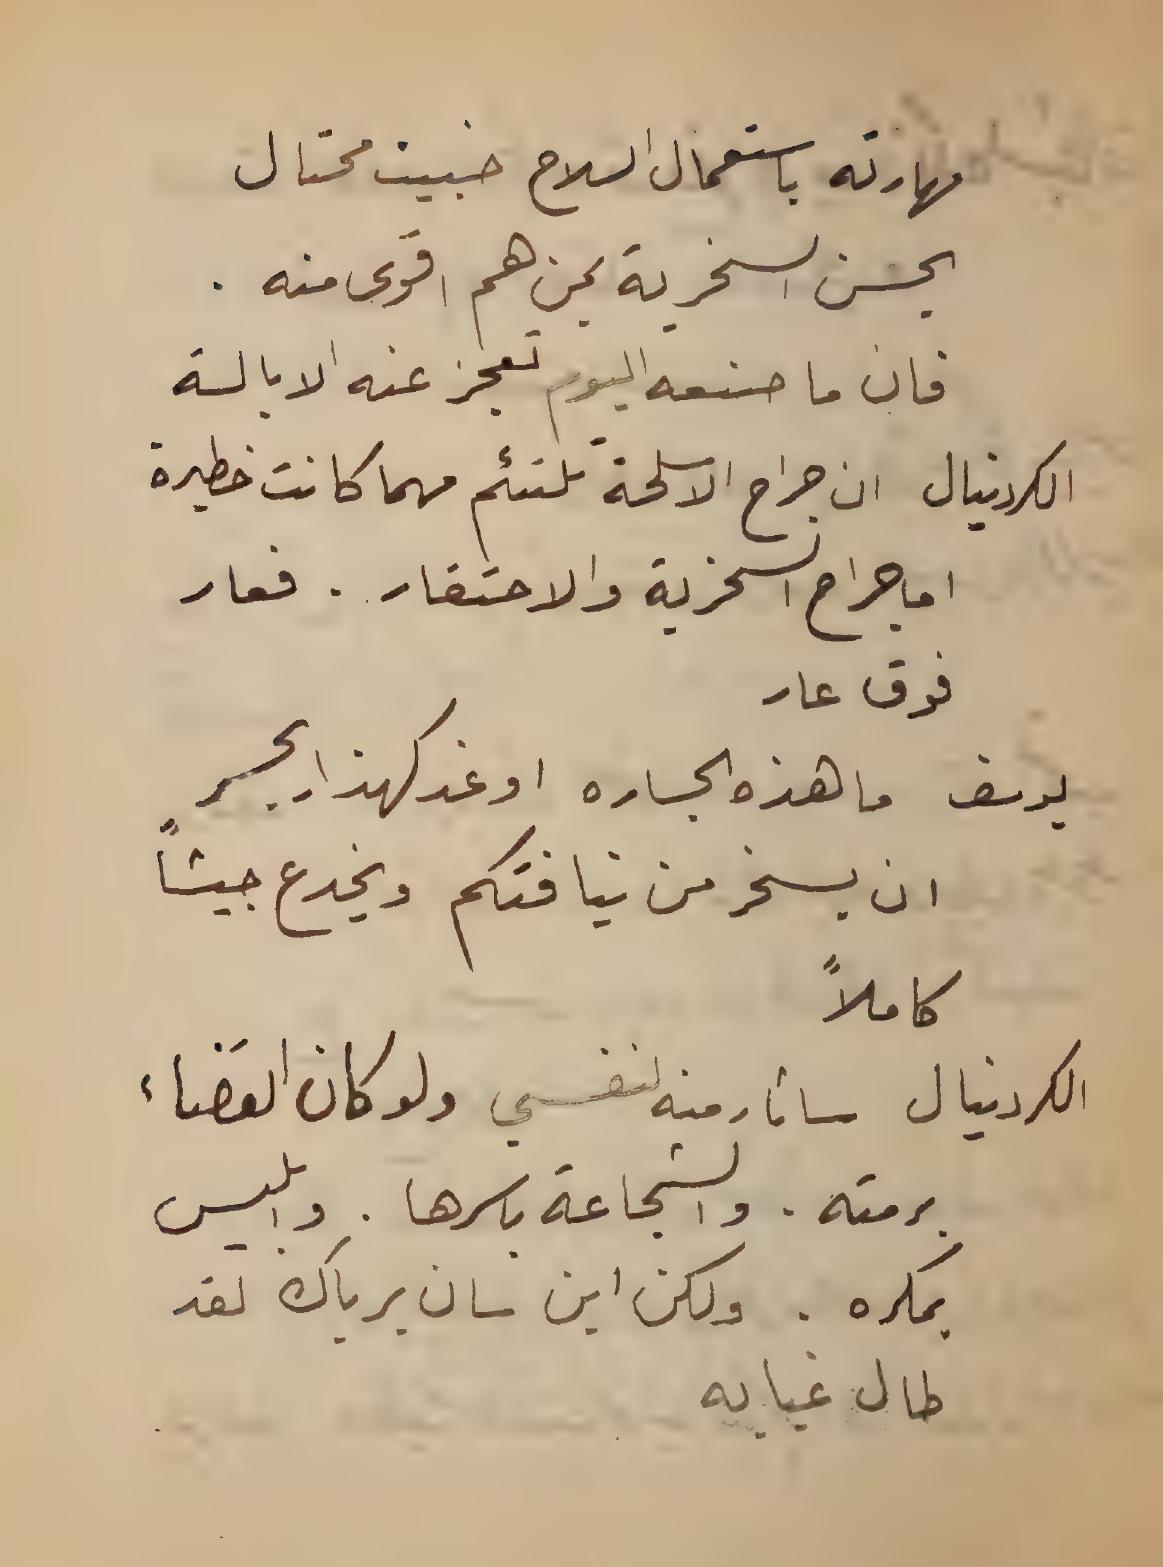 مهارته باستعمال السلاح خبيث محتال
يحسن السخرية بمن هم اقوى منه .
فان ما صنعه اليوم تعجز عنه الابالسة
الكردينال ان جراح الاسلحة تلتئم مهما كانت خطيرة
اما جراح السخرية والاحتقار . فعار
فوق عار
يوسف ما هذه الجساره اوغد كهذا يجسر
ان يسخر من نيافتكم ويخدع جيشاً
كاملاً
الكردينال ساثار منه لنفسي ولو كان القضاء
برمته . والشجاعة باسرها . وابليس
بمكره . ولكن اين سان برياك لقد
طال غيابه